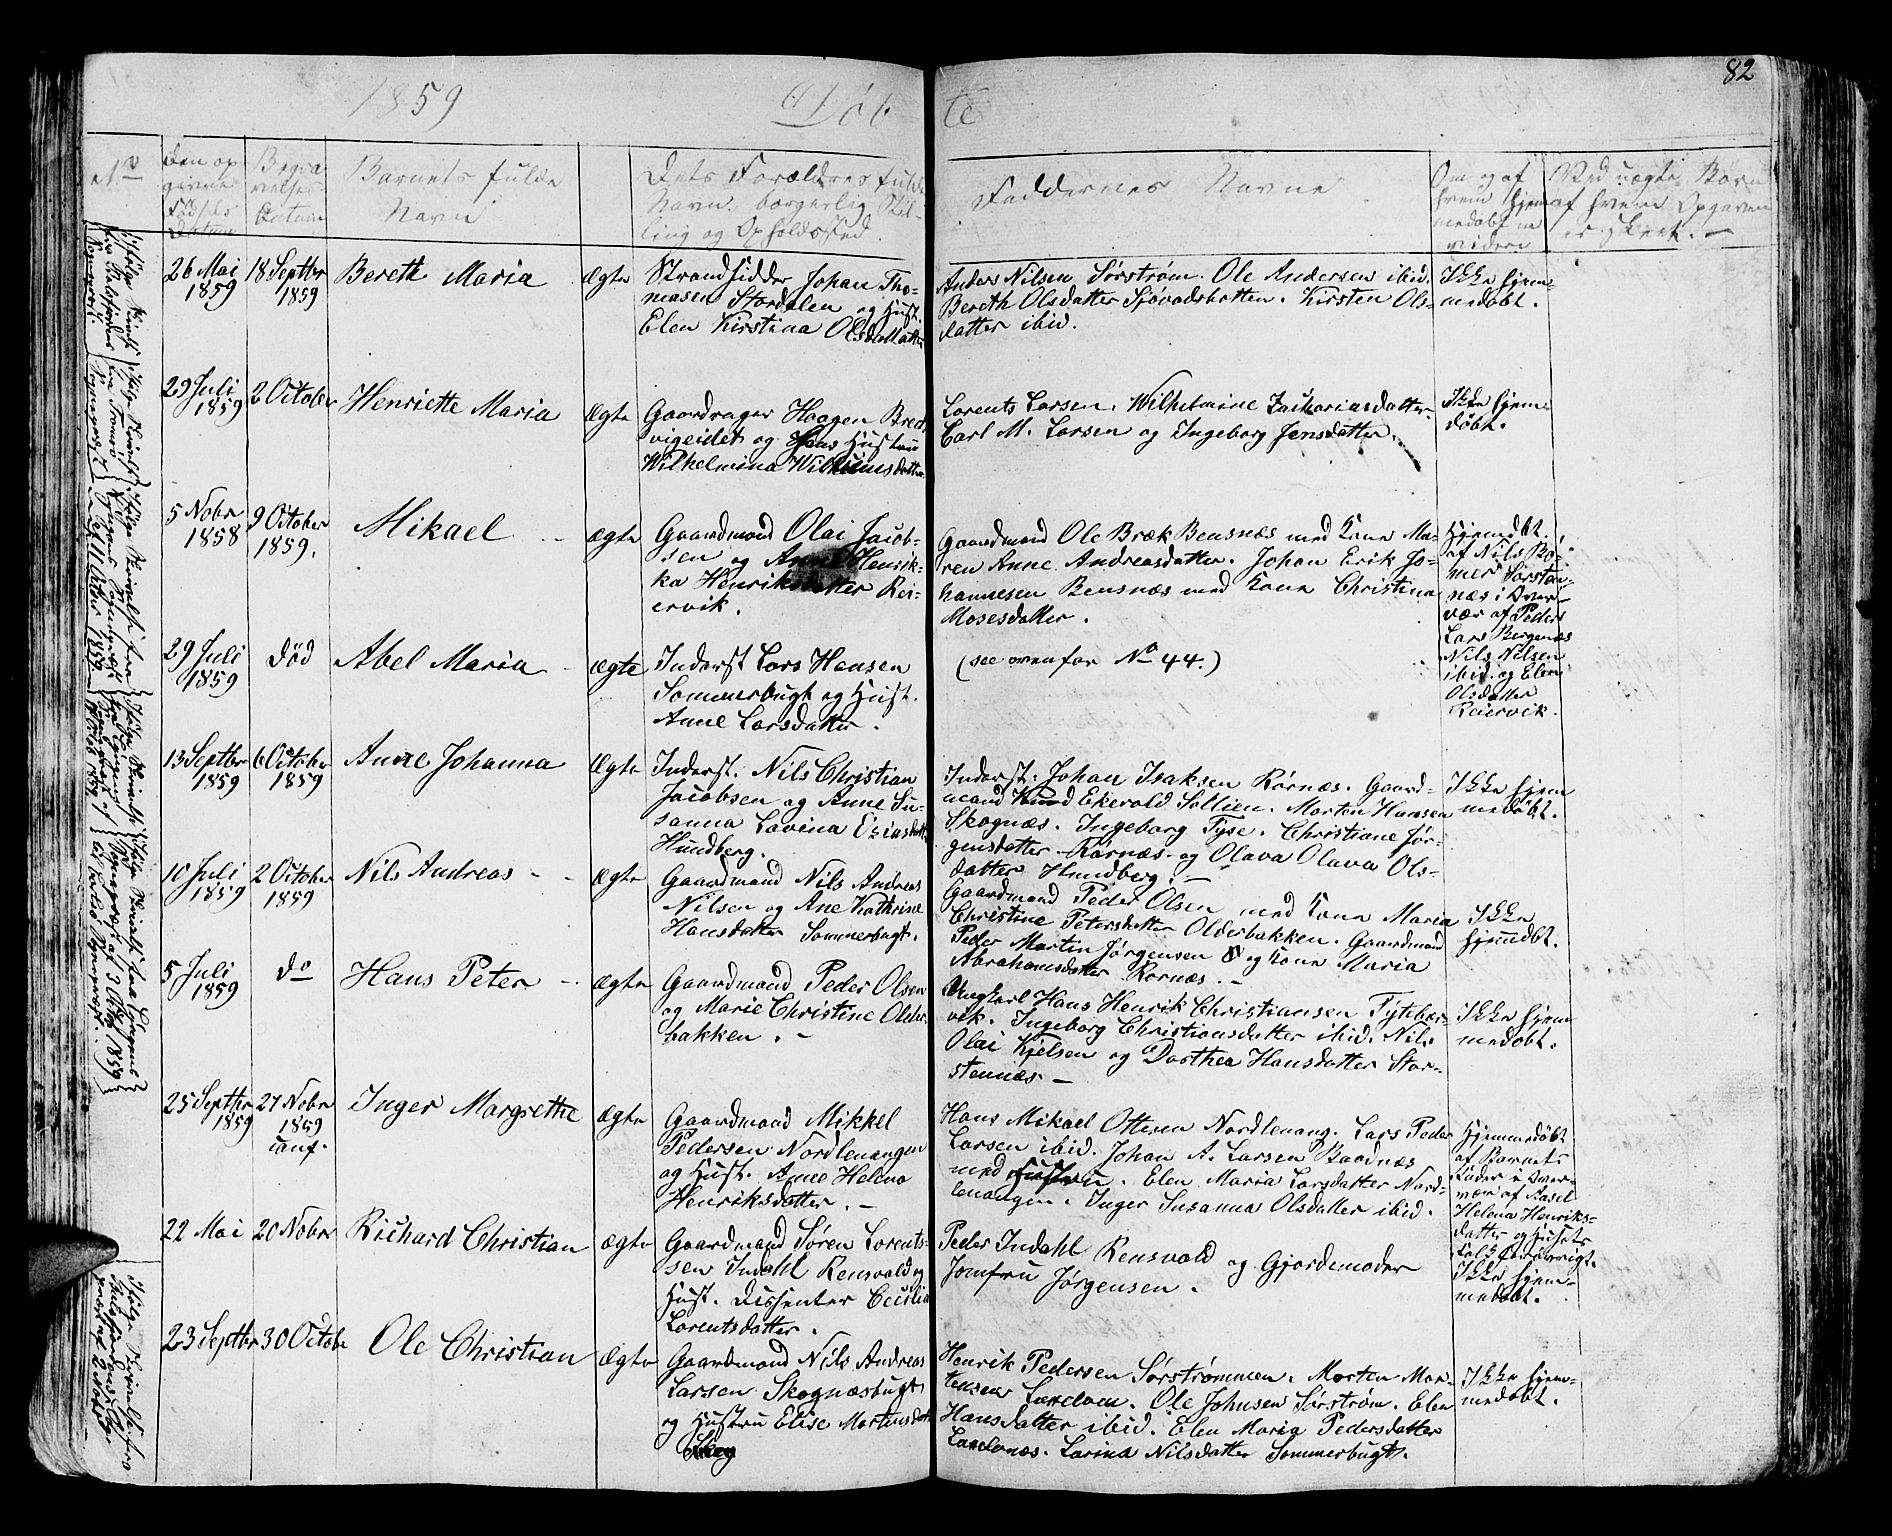 82
1859 Døb te
No
Den op
givne
Fødsels
Datum
Begra
velses
Datum
Barnets fulde
Navn
Dets Forældres fulde
Navn, borgerlig Stil-
ling og Opholdssted.
Faddernes Navne
Om og af
hvem hjem
medøbt m
videre
Ved uægte Børn
af hvem Opgaven
er skeet. -
26 Mai
1859
18 Septbr
1859
Bereth Maria
Ægte
Strandsidder Johan Tho-
mesen Stordalen og Hust.
Elen Kirstina Olsdatter
Anders Nilsen Sørstrøm. Ole Andersen ibid.
Bereth Olsdatter Sjøvadsbotten. Kirsten Ols-
datter ibid.
Ikke hjem-
medøbt.
29 Juli
1859
2 October
Henriette Maria
Ægte
Gaardrager Haagen Bred
vigeidet og Hans Hustru
Wilhelmina Wilhelmsdatter
Lorents Larsen. Wilhelmine Zachariasdatter.
Carl M. Larsen og Ingeborg Jensdatter.
Ikke hjem-
døbt.
5 Nobr
1858
9 October
1859.
Mikael
ægte
Gaardmand Olai Jacob-
sen og Anne Henrik-
ka Henriksdatter Rei-
ervik.
Gaardmand Ole Bræk Bensnæs med Kone Ma-
ren Anne Andreasdatter. Johan Erik Jo-
hannesen Bensnæs med Kone Christina
Mosesdatter.
Hjemmedøbt
af Nils Ro-
mer Sørsten-
næs i Over-
vær af Peder
Lars Bergenæs
Nils Nilsen
ibid. og Elen
Olsdatter
Reiervik.
29 Juli
1859
død
Abel Maria
ægte
Inderst Lars Hansen
Sommerbugt og Hust.
Anne Larsdatter.
(see ovenfor No 44.)
13 Septbr
1859
6 October
1859
Anne Johanna
Ægte
Inderst. Nils Christian
Jacobsen og Anne Su-
sanna Lovina Esiasdatt.
Hundberg.
Inderst. Johan Isaksen Rørnæs. Gaard-
mand Knud Ekerold Sollien. Morten Hansen
Skognæs. Ingeborg Fyse. Christiane Jør-
gensdatter Rørnæs og Olava Olava Ols-
datter Hundberg. -
Ikke hjem
medøbt.
10 Juli
1859
2 October
1859
Nils Andreas
ægte
Gaardmand Nils Andreas
Nilsen og Ane Kathrine
Hansdatter Sommerbugt.
Gaardmand Peder Olsen med Kone Maria
Christine Petersdatter Olderbakken. Gaardmand
Peder Martin Jørgensen og Kone Maria
Abrahamsdatter Rørnæs. -
Ikke
hjemdøbt.
5 Juli
1859
do
Hans Peter
ægte
Gaardmand Peder Olsen
og Marie Christine Older-
bakken. -
Ungkarl Hans Henrik Christiansen Tytebær-
vik. Ingeborg Christiansdatter ibid. Nils
Olai Kjelsen og Dorthea Hansdatter Stor-
stennæs. -
Ikke hjem
medøbt.
25 Septbr
1859
27 Nobr
1859
conf.
Inger Margrethe
ægte
Gaardmand Mikkel
Pedersen Nordlenangen
og Hust. Anne Helena
Henriksdatter. -
Hans Mikael Ottesen Nordlenang. Lars Peder
Larsen ibid. Johan A. Larsen Baadnæs
med Hustru. Elen Maria Larsdatter Nord-
lenangen. Inger Susanna Olsdatter ibid.
Hjemmedøbt
af Barnets
Fader i Over-
vær af Basel
Helena Henriks-
datter og Husets
Folk
22 Mai
20 Nobr
Richard Christian
ægte
Gaardmand Søren Lorents-
sen Indahl Rensvold og
Hust. Dissenter Cecilia
Lorentsdatter.
Peder Indahl Rensvold og Gjordemoder
Jomfru Jørgensen.
Ikke hjem-
medøbt.
23 Septbr
30 Octobr
Ole Christian
ægte
Gaardmand Nils Andreas
Larsen Skognæsbugt
og Hustru Elise Mortensdatt.
Skog
Henrik Pedersen Sørstrømmen. Morten Mor-
tensen. Ole Johnsen Sørstrøm. Elen
Hansdatter ibid. Elen Maria Pedersdatter
Larina Nilsdatter Sommerbugt.
Ikke hjem-
medøbt.